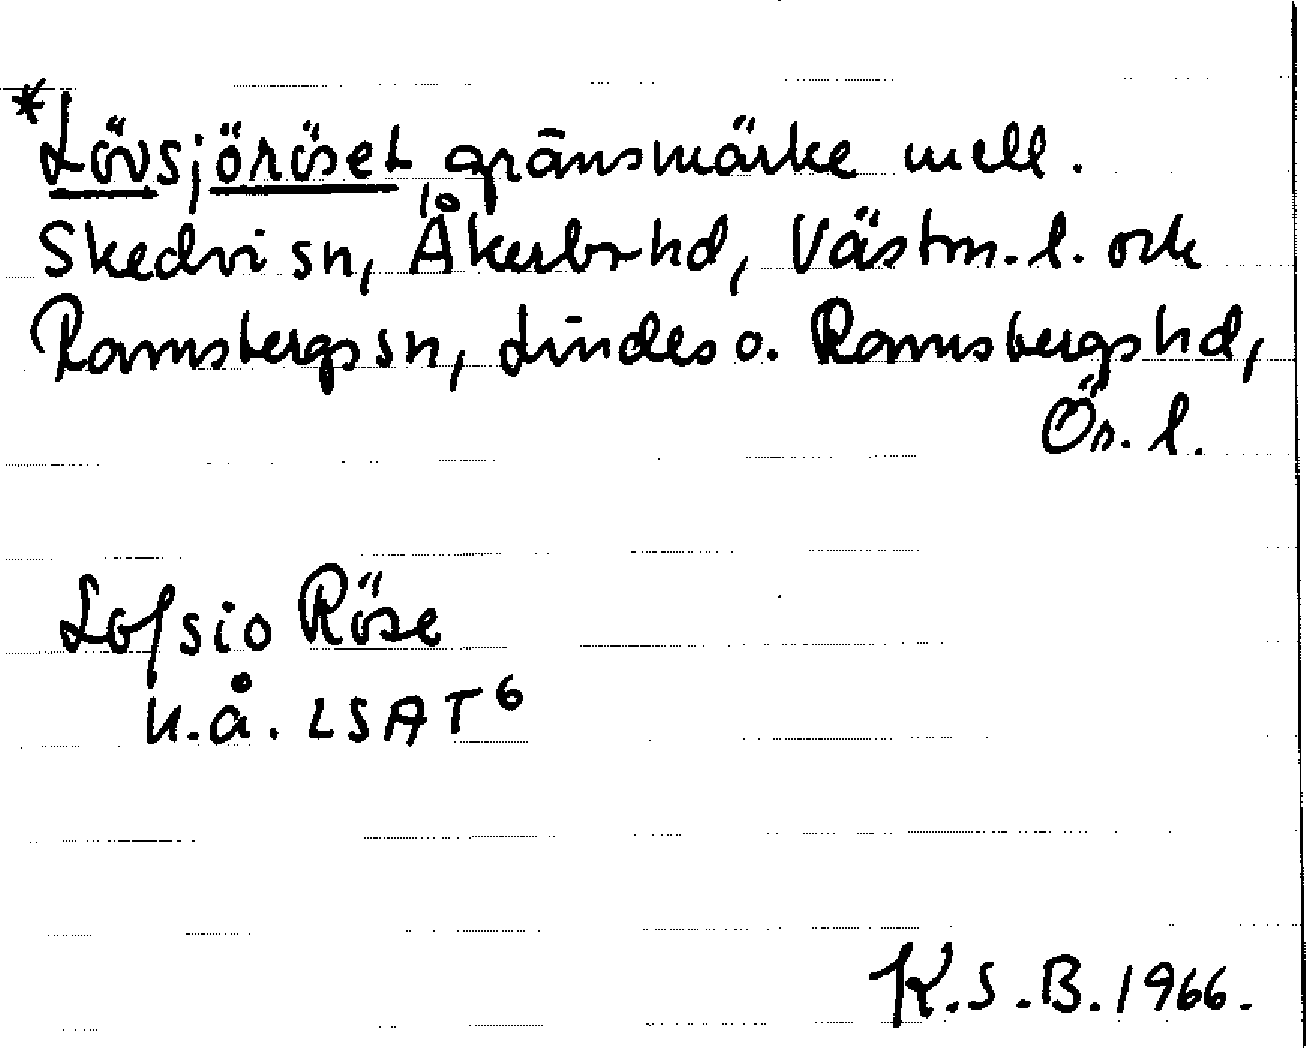 *Lövsjöröset gränsmärke mell.
Skedvi sn, Åkerbr hd, Västm. l. och
Ramsbergs sn, Lindes o. Ramsbergs hd,
Ör. l.
Lofsio Röse
u.å. LSA T6
K.S.B. 1966.